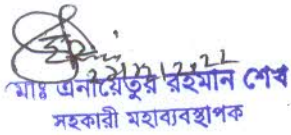 ২১/১২/২২
মোঃ এনায়েতুর রহমান শেখ
সহকারী মহাব্যবস্থাপক